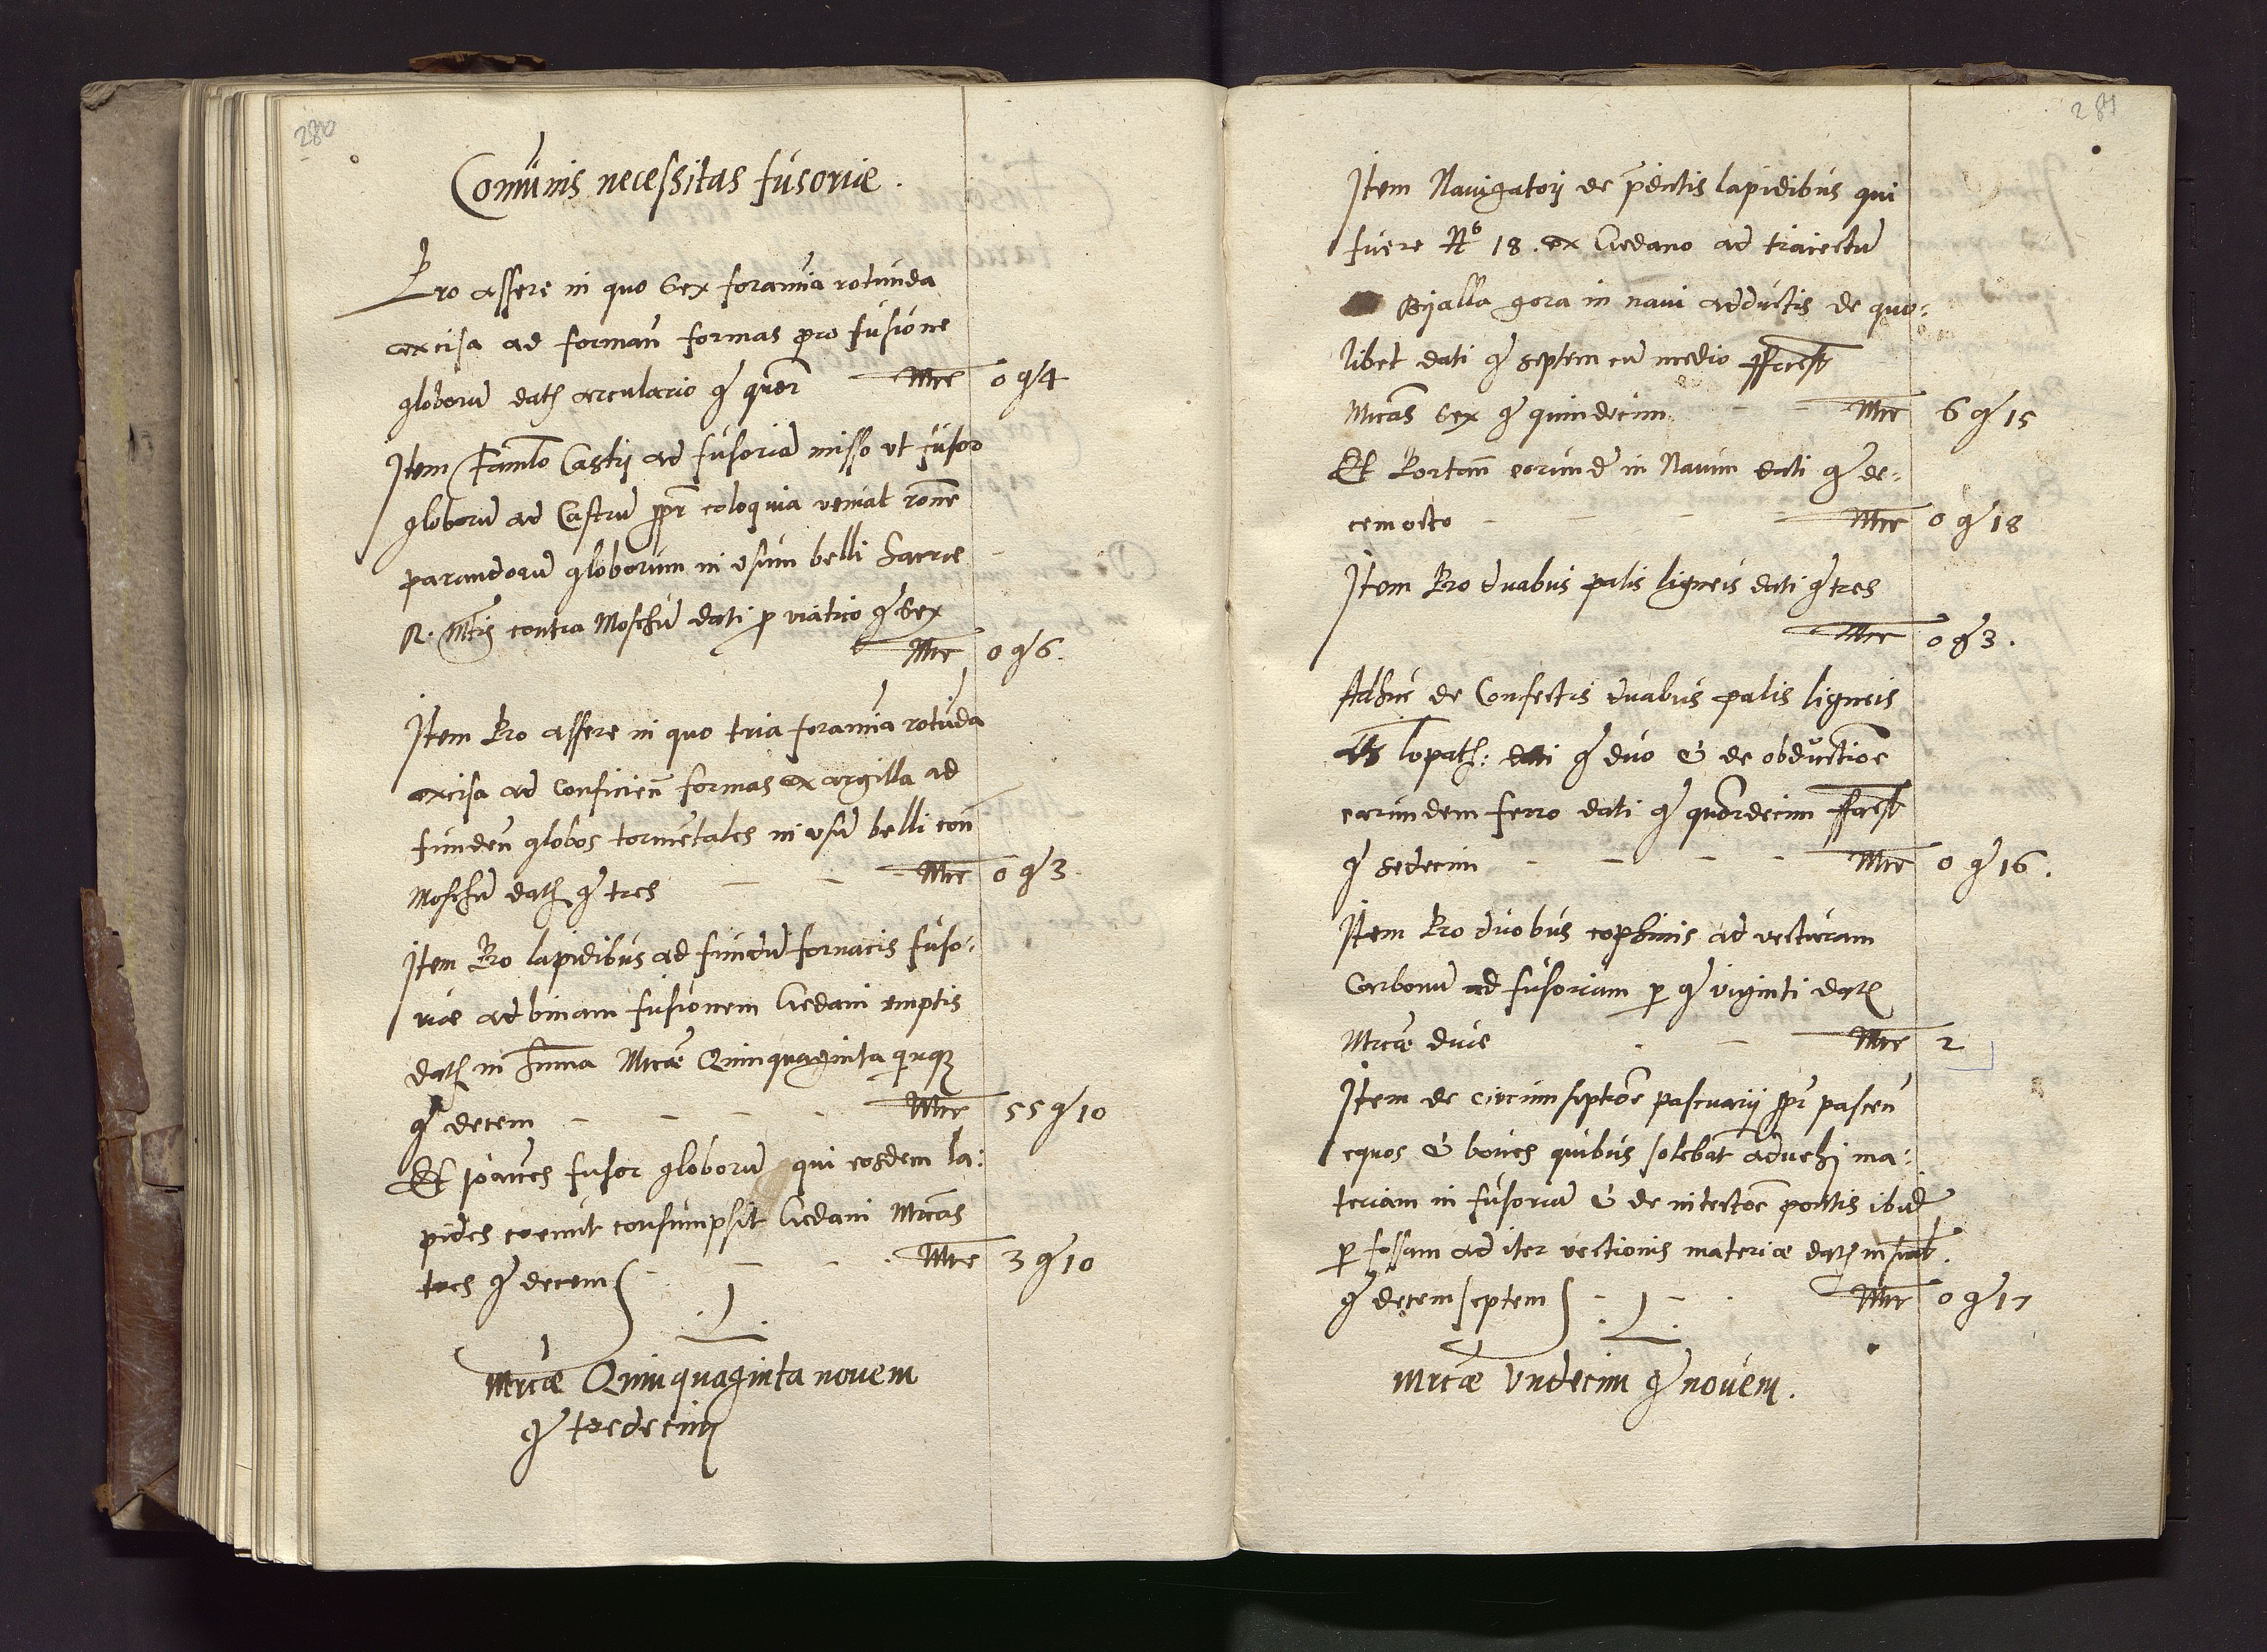 280
Com̄unis necessitas fusoriæ.
Pro assere in quo sex foramīa rotunda
excisa ad formań formas pro fusione
globorū datj arculario gr quor Mrc 0 gr 4
Item Famlo Castrj ad fusoriā misso vt fusor
globorū ad Castrū ppr coloquia veniat rōne
parandorū globorum in vsum belli Sacræ
R. Mtis contra Moschū dati p viatico gr sex
Mrc 0 gr 6.
Item Pro assere in quo tria foramīa rotūda
excisa ad conficień formas ex argilla ad
fundeń globos tormētales in vsū belli con
Moschū datj gr tres Mrc 0 gr 3.
Item Pro lapidibus ad fundū fornacis fuso:
riæ ad binam fusionem Gedani emptis
datj in summa Mrcæ Quinquaginta qnqz
gr decem Mrc 55 gr 10
Et Joānes fusor globorū qui eosdem la:
pides coemit consumpsit Gedani Mrcas
tres gr decem Mrc 3 gr 10
Mrcæ Quinquaginta novem
gr tredecim
281
Item Navigatorj de p̄dictis lapidibus qui
fuere Nō 18. ex Gedano ad traiectū
Byalla gora in navi adductis de quo:
libet dati gr septem cū medio ffacit
Mrcas sex gr quindecim Mrc 6 gr 15
Et Portań eorundē in Navim dati gr de:
cem octo Mrc 0 gr 18
Item Pro duabus palis ligneis dati gr tres
Mrc 0 gr 3.
Adhuc de Confectis duabus palis ligneis
als lopatj: dati gr duo & de obductioē
earundem ferro dati gr quordecim ffacit
gr sedecim Mrc 0 gr 16.
Item Pro duobus cophinis ad vecturam
Carbonū ad fusoriam p gr viginti datj
Mrcæ duæ Mrc 2
Item de circumseptioē pascuarij ppr pasceń
equos & boues quibus solebāt advehj ma:
teriam in fusoriā & de intectioē pontis ibidē
p fossam ad iter vectionis materiæ datj in sūa.
gr decem septem Mrc 0 gr 17
Mrcæ Vndecim gr novem.